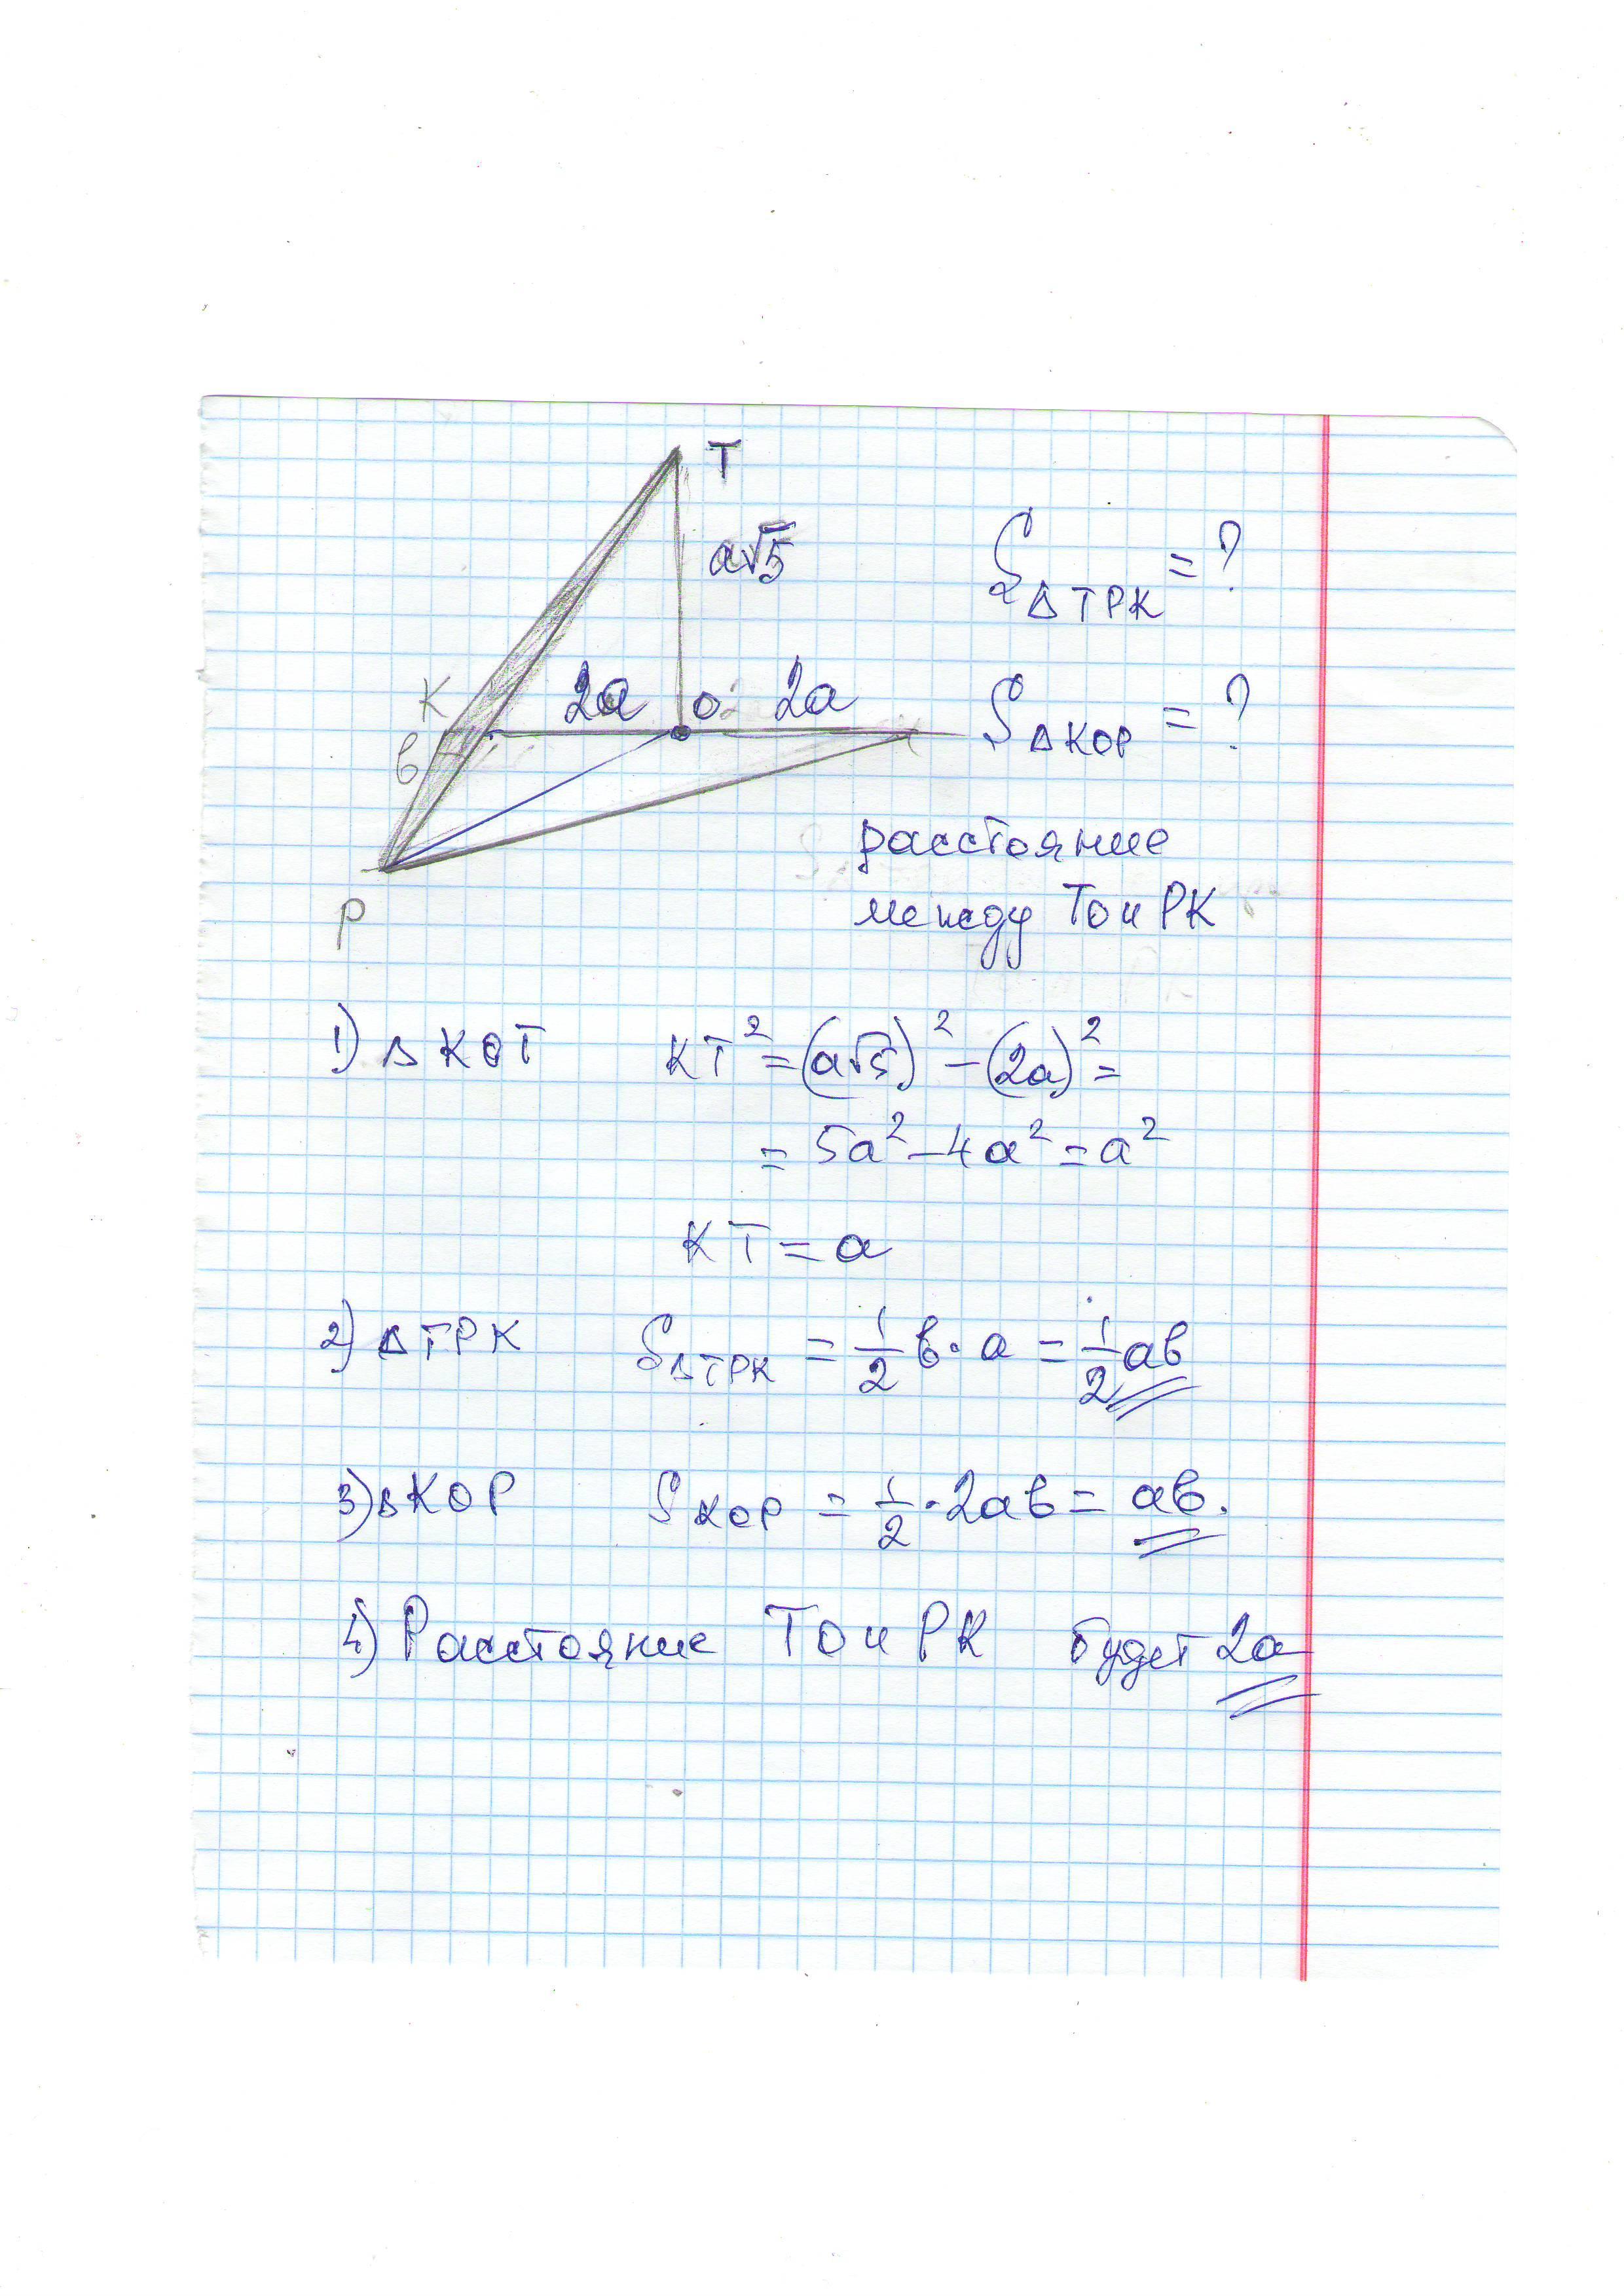 T
a√5
S ΔTPK = ?
K 2a O 2a
S ΔKOP = ?
в
расстояние
P между ТО и РК
1) Δ KOT KT² = (a√5)² – (2a)² =
= 5a² – 4a² = a²
KT = a
2) Δ TPK S ΔTPK = 1/2 в · a = 1/2 aв
3) Δ KOP S KOP = 1/2 · 2aв = aв.
4) Расстояние ТО и РК будет 2a